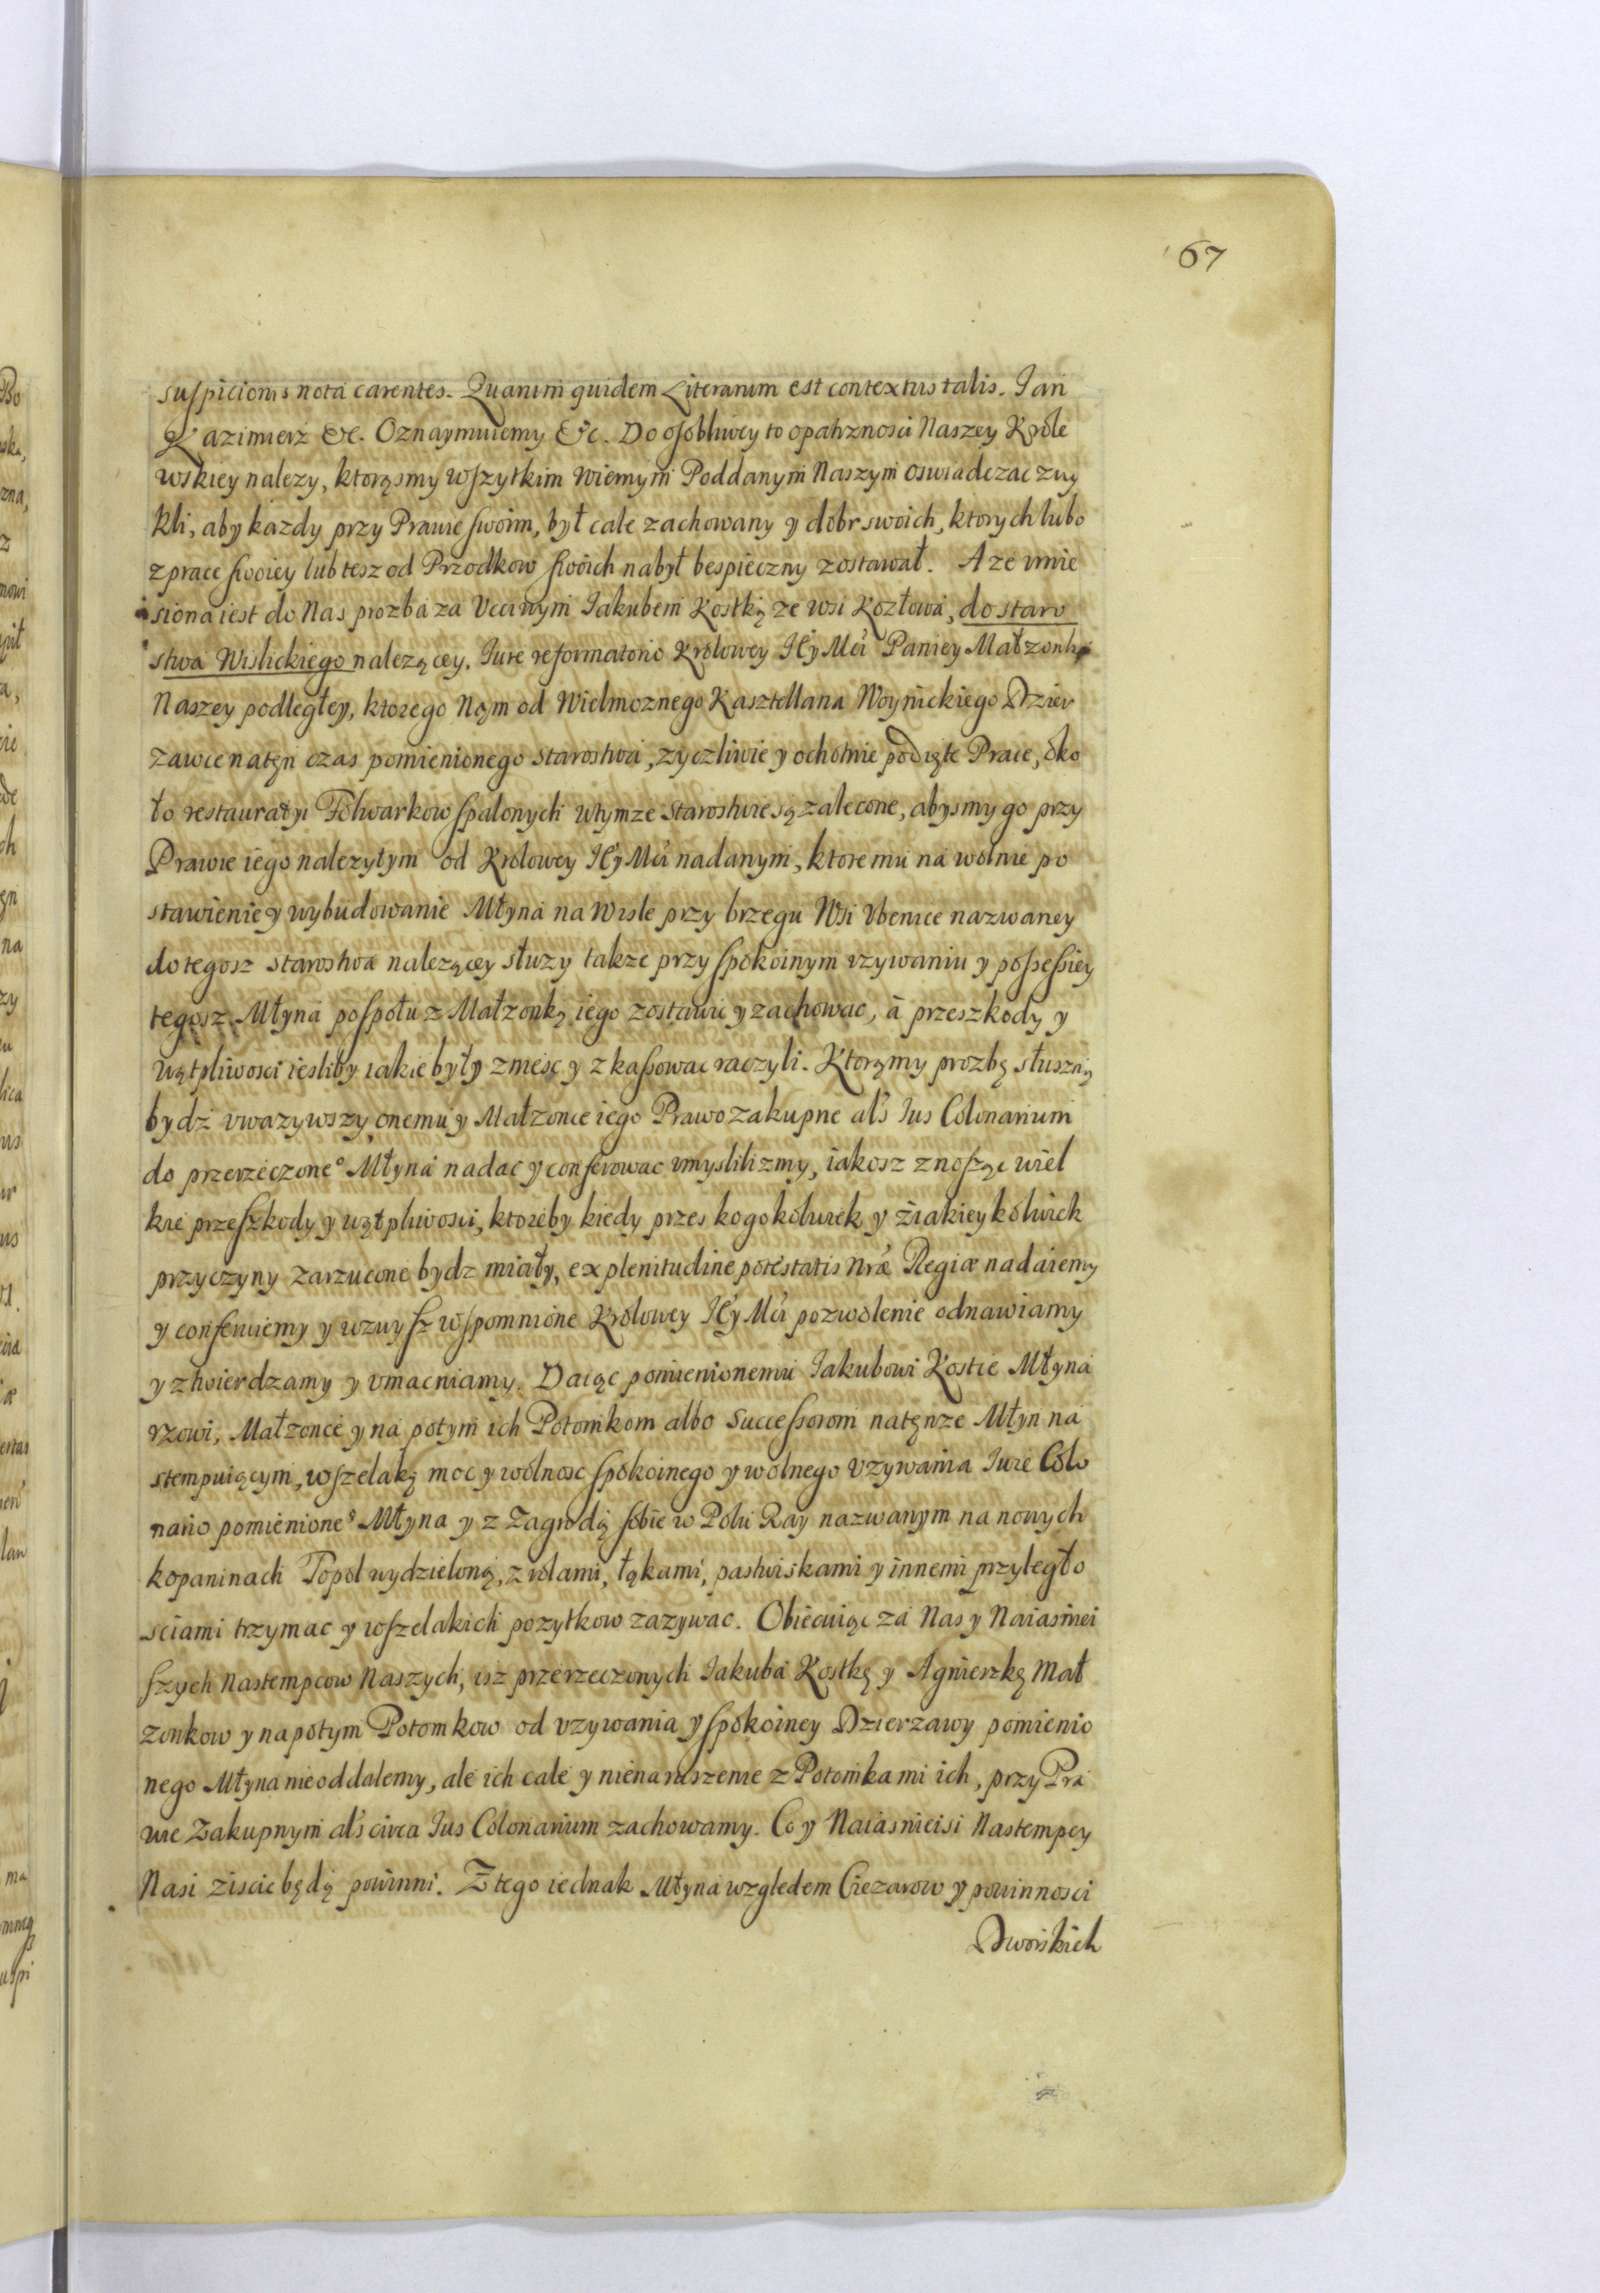 67
suspicionis nota carentes. Quarum quidem Literarum est contextus talis. Jan
Kazimierz &c. Oznaymuiemy &c. Do osobliwey to opatrznosci Naszey Krole
wskiey nalezy, ktorąsmy wszytkim wiernym Poddanym Naszym oswiadczac zwy
kli, aby kazdy przy Prawie swoim, był cale zachowany y dobr swoich, ktorych lubo
z prace swoiey lub tesz od Przodkow swoich nabył bespieczny zostawał. A ze wnie
siona iest do Nas prozba za Uccziwym Jakubem Kostką ze wsi Kozłowa, do staro
stwa Wislickiego nalezącey, Jure reformatorio Krolowey JEy Mci Paniey Małzonki
Naszey podległey, ktorego Nąm od Wielmoznego Kasztellana Woynickiego Dzier
zawce natęn czas pomienionego starostwa, zyczliwie y ochotnie podięte Prace, oko
ło restauratyi Folwarkow spalonych wtymze starostwie są zalecone, abysmy go przy
Prawie iego nalezytym od Krolowey JEy Mci nadanym, ktore mu na wolnie po
stawienie y wybudowanie Młyna na Wisle przy brzegu Wsi Ubenice nazwaney
do tegosz starostwa nalezącey słuzy takze przy spokoinym uzywaniu y possessiey
tegosz Młyna pospołu z Małzonką iego zostawic y zachowac, a przeszkody y
wątpliwosci iesliby iakie były zniesc y zkassowac raczyli. Ktorąmy prozbę słuszną
bydz uwazywszy, onemu y Małzonce iego Prawo zakupne als Jus Colonarium
do przerzeczone° Młyna nadac y conferowac umyslilizmy, iakosz znosząc wiel
kie przeszkody y wątpliwosci, ktoreby kiedy przes kogokolwiek y z iakieykolwiek
przyczyny zarzucone bydz miały, ex plenitudine potestatis nræ Regiæ nadaiemy
y conferuiemy y wzwysz wspomnione Krolowey JEy Mci pozwolenie odnawiamy
y ztwierdzamy y umacniamy. Daiąc pomienionemu Jakubowi Kostce Młyna
rzowi, Małzonce y na potym ich Potomkom albo Successorom natęnze Młyn na
stempuiącym, wszelaką moc y wolnosc spokoinego y wolnego uzywania Jure Colo
nario pomienione° Młyna y z Zagrodą sobie w Polu Ray nazwanym na nowych
kopaninach Topol wydzieloną, z rolami, łąkami, pastwiskami y innemi przyległo
sciami trzymac y wszelakich pozytkow zazywac. Obiecuiąc za Nas y Naiasniei
szych Nastempcow Naszych, isz przerzeczonych Jakuba Kostkę y Agnieszkę Mał
zonkow y napotym Potomkow od uzywania y spokoiney Dzierzawy pomienio
nego Młyna nie oddalemy, ale ich cale y nienaruszenie z Potomkami ich, przy Pra
wie Zakupnym als circa Jus Colonarium zachowamy. Co y Naiasnieisi Nastempcy
Nasi ziscic będą powinni. Z tego iednak Młyna względem Ciezarow y powinnosci
Dworskich